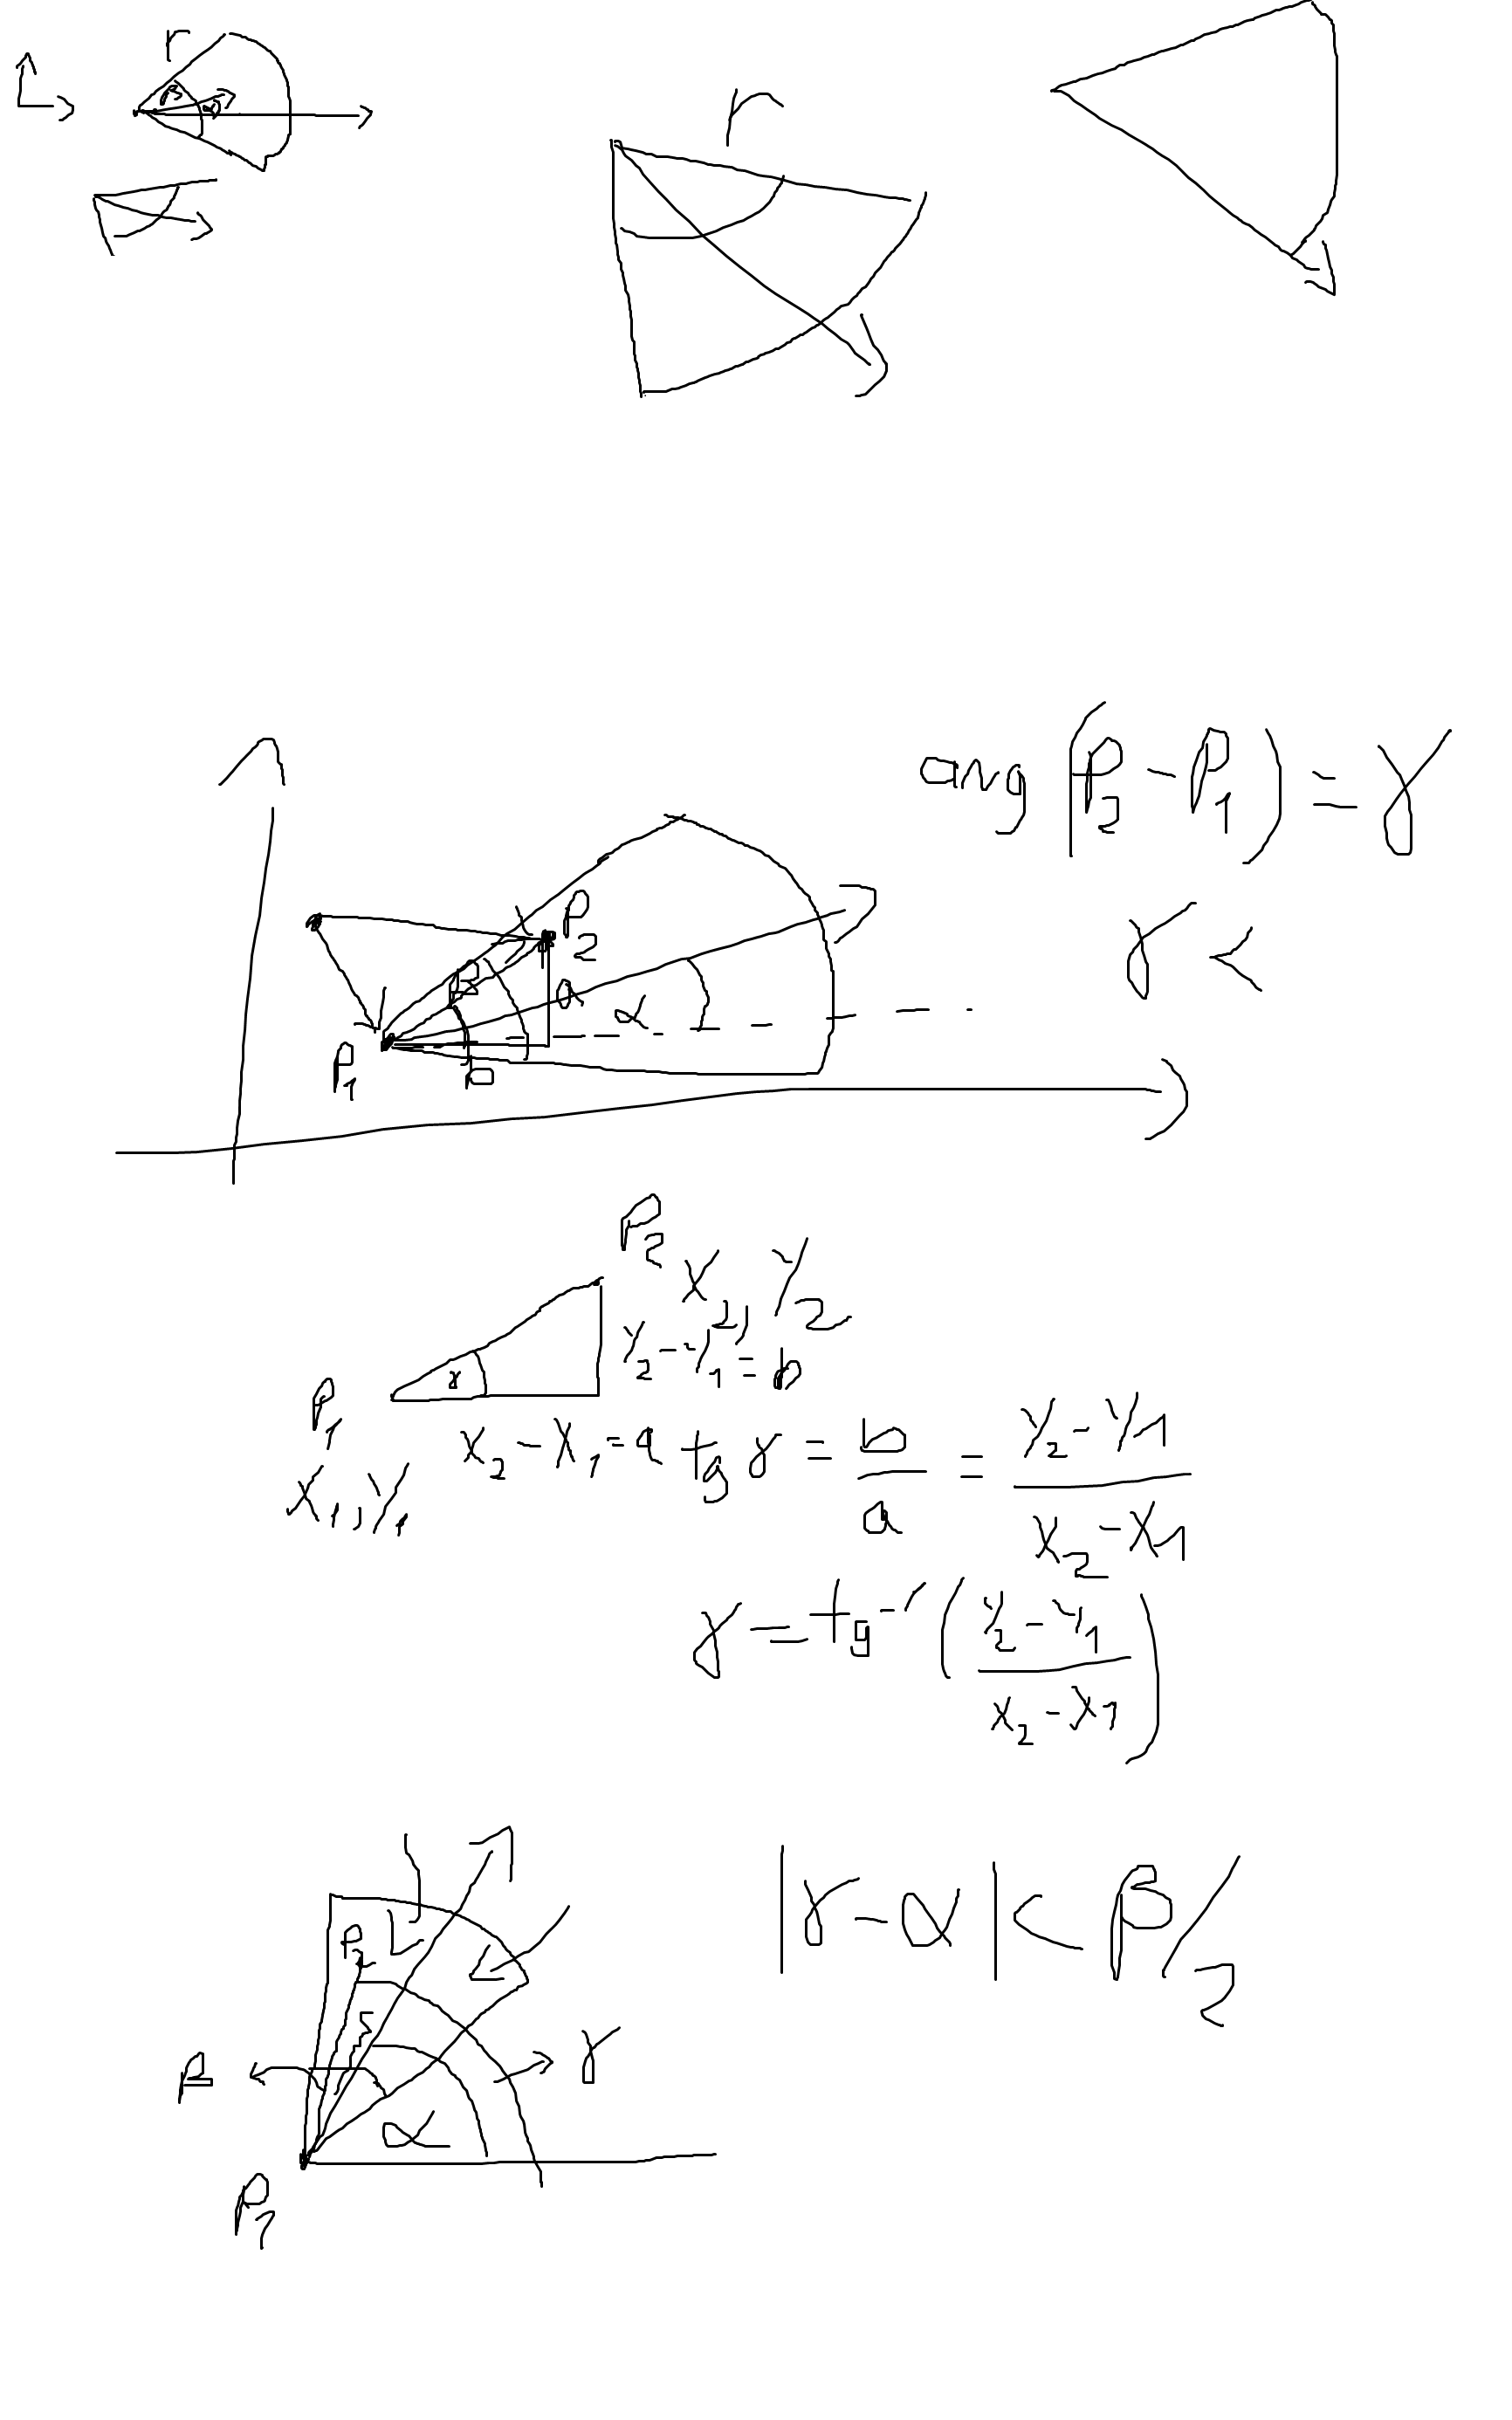 r
β α
r
ang (P2 - P1) = γ
γ <
P2
β a
α
P1 b
P2
x2, y2
y2 - y1 = b
γ
P1
x2 - x1 = a
x1, y1
tg γ = b/a = (y2 - y1)/(x2 - x1)
γ = tg⁻¹ ((y2 - y1)/(x2 - x1))
|γ - α| < β/2
P2
β
γ
α
P1